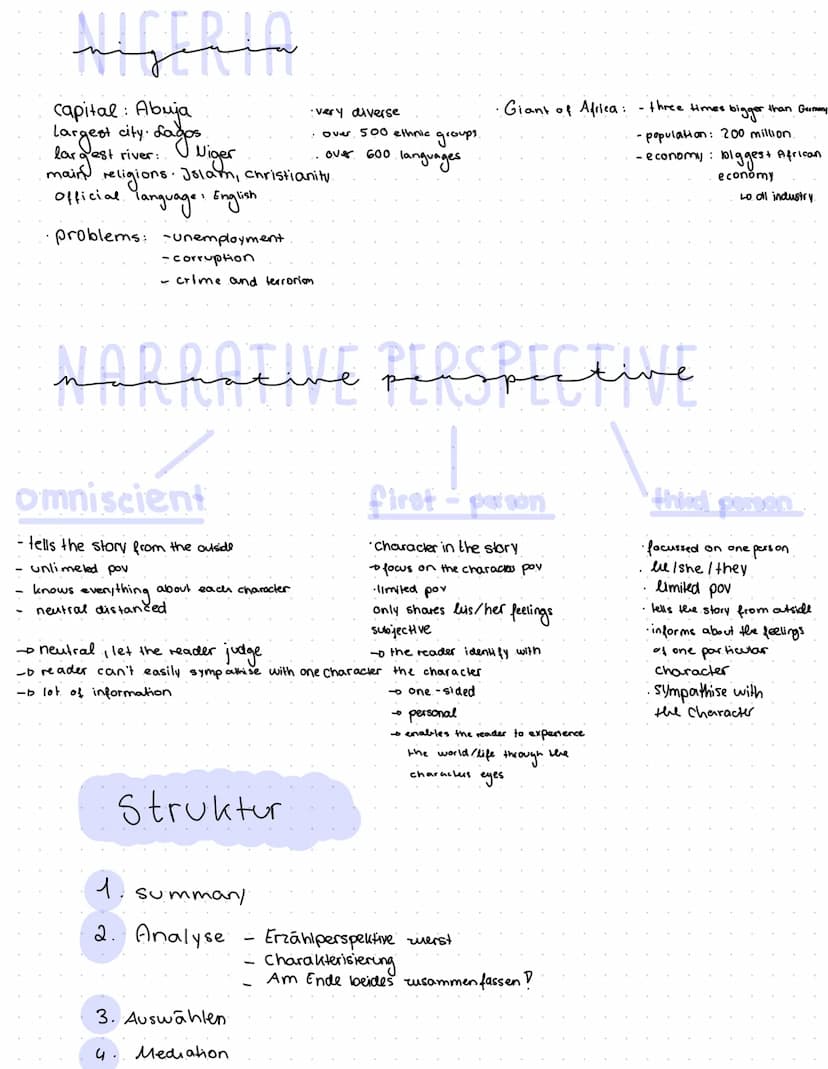 NIGERIA
nigeria
capital: Abuja
largest city: Lagos
largest river: Niger
main religions: Islam, Christianity
Official language: English
· very diverse
· over 500 ethnic groups
· over 600 languages
· Giant of Africa: - three times bigger than Germany
- population: 200 million
- economy: biggest African
economy
↳ oil industry
· problems: - unemployment
- corruption
- crime and terrorism
NARRATIVE PERSPECTIVE
narrative perspective
omniscient
- tells the story from the outside
- unlimeted pov
- knows everything about each character
- neutral distanced
→ neutral, let the reader judge
→ reader can't easily sympathise with one character
→ lot of information
first-person
· Character in the story
→ focus on the characters pov
· limited pov
only shares his/her feelings
subjective
→ the reader identify with
the character
→ one-sided
→ personal
→ enables the reader to experience
the world/life through the
characters eyes
third person
· focussed on one person
· he/she/they
· limited pov
· tells the story from outside
· informs about the feelings
of one particular
character
· sympathise with
the character
Struktur
1. summary
2. Analyse - Erzählperspektive zuerst
- Charakterisierung
- Am Ende beides zusammenfassen!
3. Auswählen
4. Mediation